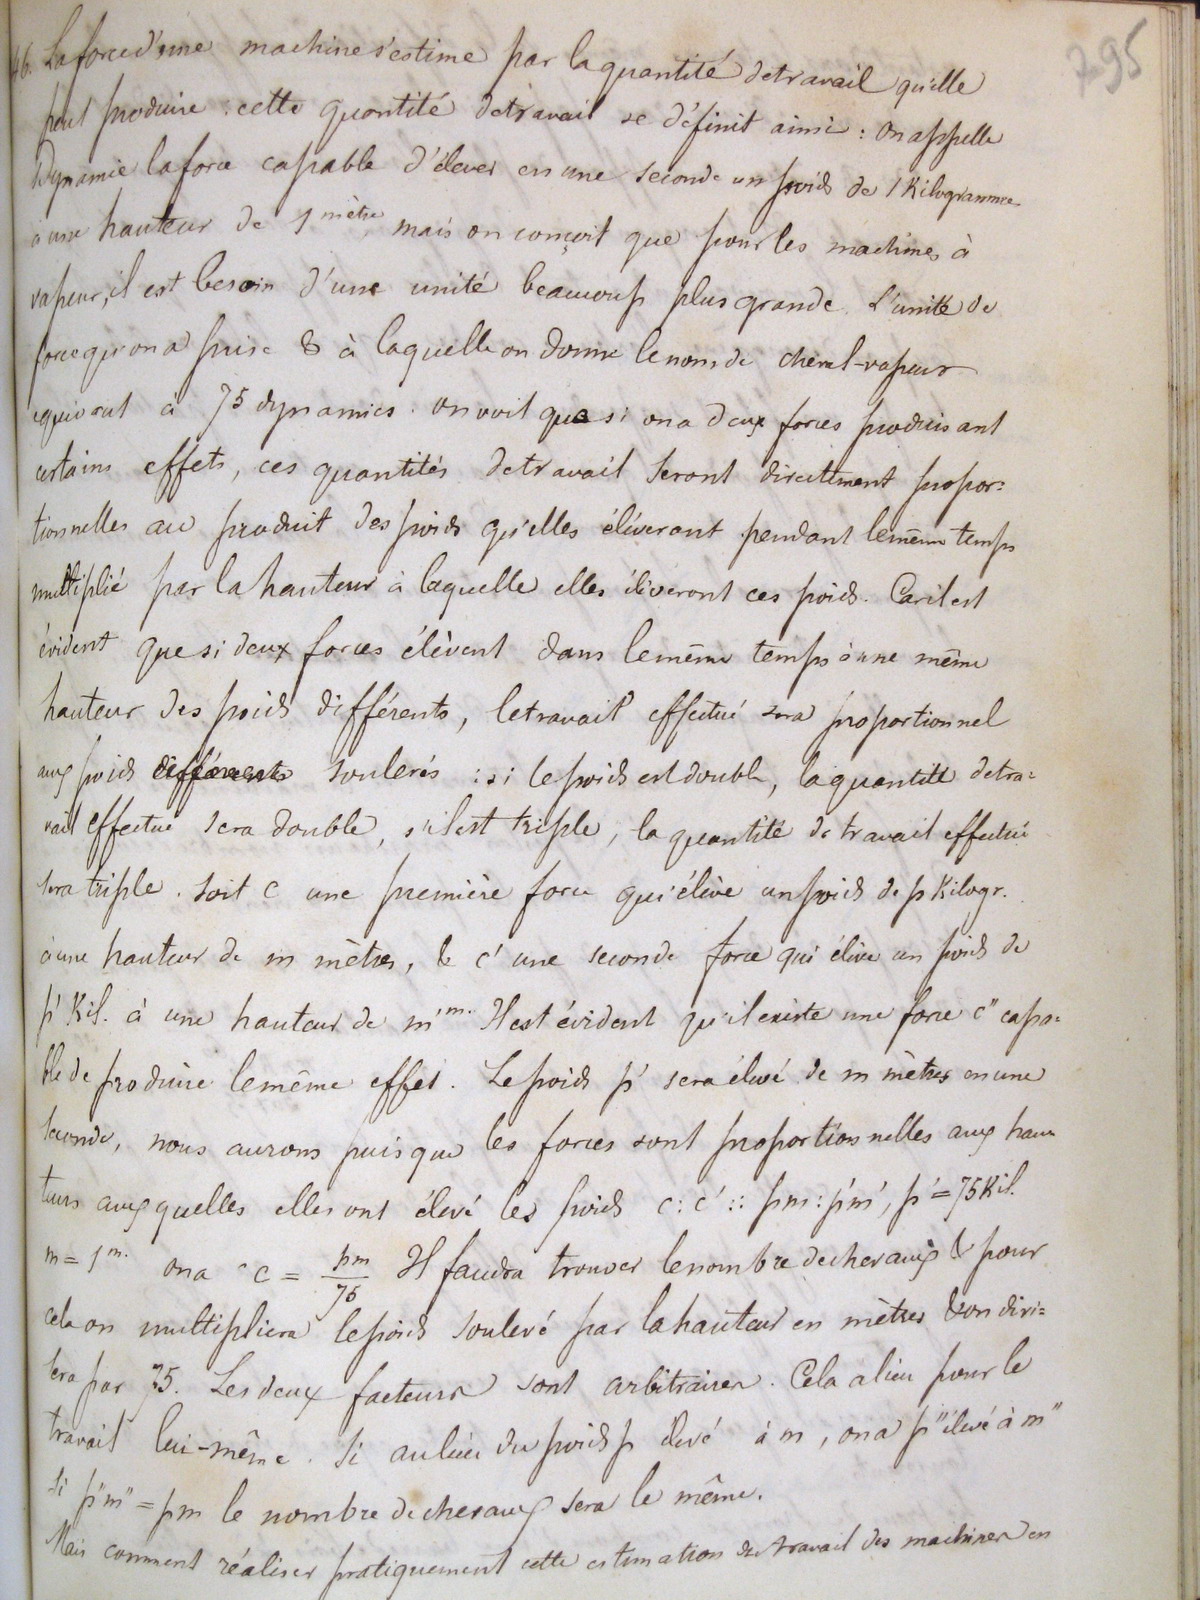 795
46. La force d'une machine s'estime par la quantité de travail qu'elle
peut produire : cette quantité de travail se définit ainsi : on appelle
Dynamie la force capable d'élever en une seconde un poids de 1 Kilogramme
à une hauteur de 1 mètre, mais on conçoit que pour les machines à
vapeur, il est besoin d'une unité beaucoup plus grande. L'unité de
force qu'on a prise & à laquelle on donne le nom de cheval-vapeur
équivaut à 75 dynamies. on voit que si on a deux forces produisant
certains effets, ces quantités de travail seront directement propor=
tionnelles au produit des poids qu'elles élèveront pendant le même temps
multiplié par la hauteur à laquelle elles élèveront ces poids. Car il est
évident que si deux forces élèvent dans le même temps à une même
hauteur des poids différents, le travail effectué sera proportionnel
aux poids différents soulevés : si le poids est double, la quantité de tra=
vail effectué sera double, s'il est triple, la quantité de travail effectué
sera triple. Soit c une première force qui élève un poids de p Kilogr.
à une hauteur de m mètres, & c' une seconde force qui élève un poids de
p' Kil. à une hauteur de m' m. Il est évident qu'il existe une force c" capa=
ble de produire le même effet. Le poids p' sera élevé de m mètres en une
seconde, nous aurons puisque les forces sont proportionnelles aux hau
teurs auxquelles elles ont élevé les poids c : c' :: pm : p'm', p' = 75 Kil.
m = 1 m. on a c = pm/75 Il faudra trouver le nombre de chevaux & pour
cela on multipliera le poids soulevé par la hauteur en mètres & on divi=
sera par 75. Les deux facteurs sont arbitraires. Cela a lieu pour le
travail lui-même. Si au lieu du poids p élevé à m, on a p" élevé à m"
si p"m" = pm le nombre de chevaux sera le même.
Mais comment réaliser pratiquement cette estimation du travail des machines en